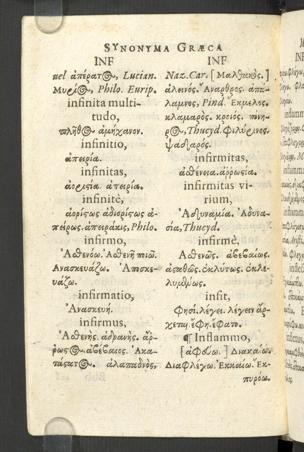 SYNONYMA GRÆCA
INF
vel ἀπέρατος, Lucian.
Μυρίος, Philo. Eurip.
infinita multi-
tudo,
πλῆθος ἀμήχανον.
infinitio,
ἀπειρία.
infinitas,
ἀοριστία. ἀπειρία.
infinitè,
ἀορίστως ἀδιορίστως ἀ-
πείρως. ἀπειράκις, Philo.
infirmo,
Ἀσθενόω. Ἀσθενῆ ποιῶ.
Ἀνασκευάζω. Ἀποσκε-
υάζω.
infirmatio,
Ἀνασκευή.
infirmus,
Ἀσθενής. ἀδρανής. ἄῤ-
ῥωστος. ἀβέβαιος. Ἀκα-
τάστατος. ἀλαπαδνός,
INF
Naz. Car. [Μαλθακός.]
ἀλεινός. Ἄναρθρος. ἀπά-
λαμνος, Pind. Ἔκμελος.
κλαμαρός.
Thucyd. φιλύρινος.
ψαθαρός.
infirmitas,
ἀσθένεια. ἀῤῥωστία.
infirmitas vi-
rium,
Ἀδυναμία. Ἀδυνα-
σία, Thucyd.
infirmè,
Ἀσθενῶς. ἀβεβαίως.
ἀσταθῶς. ἐκλύτως. ἐκλε-
λυμένως.
infit,
Φησί. λέγει. λέγειν ἄρ-
χεται. ἔφη. ἔφατο.
¶ Inflammo,
Διακαίω.
Διαφλέγω. Ἐκκαίω. Ἐκ-
πυρόω.